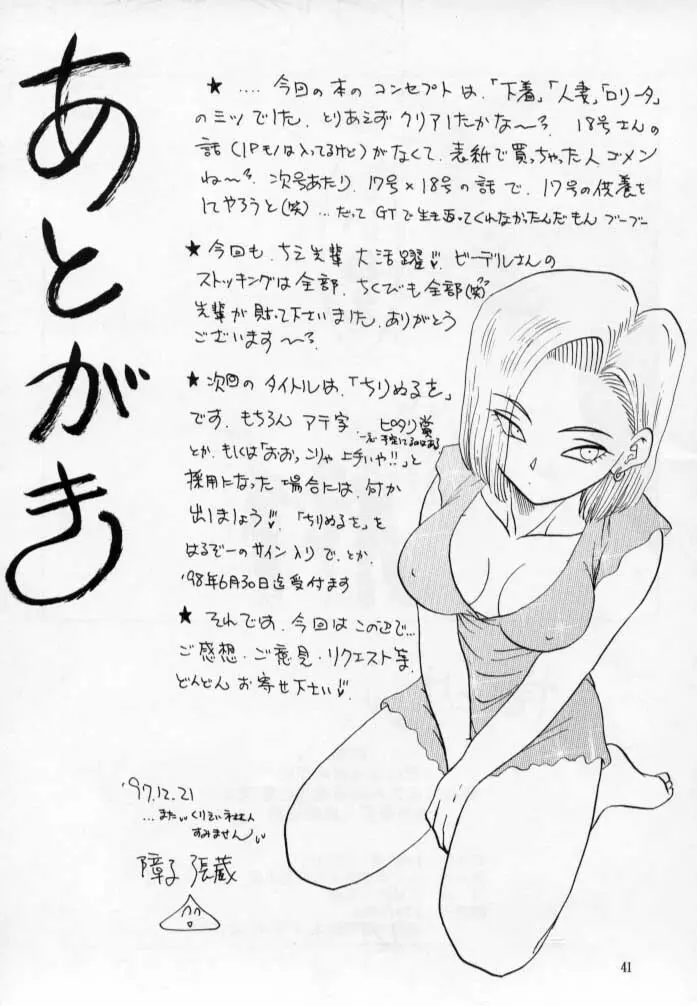 あとがき
★ .... 今回の本の コンセプト は、「下着」、「人妻」、「ロリータ」
の三ツ でした、とりあえず クリアしたかな〜? 18号さんの
話(1Pモノは入ってるけど)がなくて、表紙で買っちゃった人 ゴメン
ね〜? 次号あたり、17号×18号の話で、17号の供養を
してやろうと(笑)…だって GTで生き返ってくれなかったんだもん ブーブー
★ 今回も、ちえ先輩 大活躍 ビーデルさんの
ストッキングは全部、ちくびも全部(笑)
先輩が貼って下さいました、ありがとう
ございます 〜?
★ 次回の タイトルは、「ちりぬるを」
です、もちろん アテ字、ヒロタリ賞
とか、もしくは「おおっ こりゃ 上手いや!!」と
採用になった 場合には、何か
出しましょう 「ちりぬるを」を
はるぞーのサイン入りで、とか、
'98年6月30日迄受付ます
★ それでは、今回は この辺で...
ご感想・ご意見・リクエスト等、
どんどん お寄せ下さい
'97.12.21
すみません
障子 張蔵
41